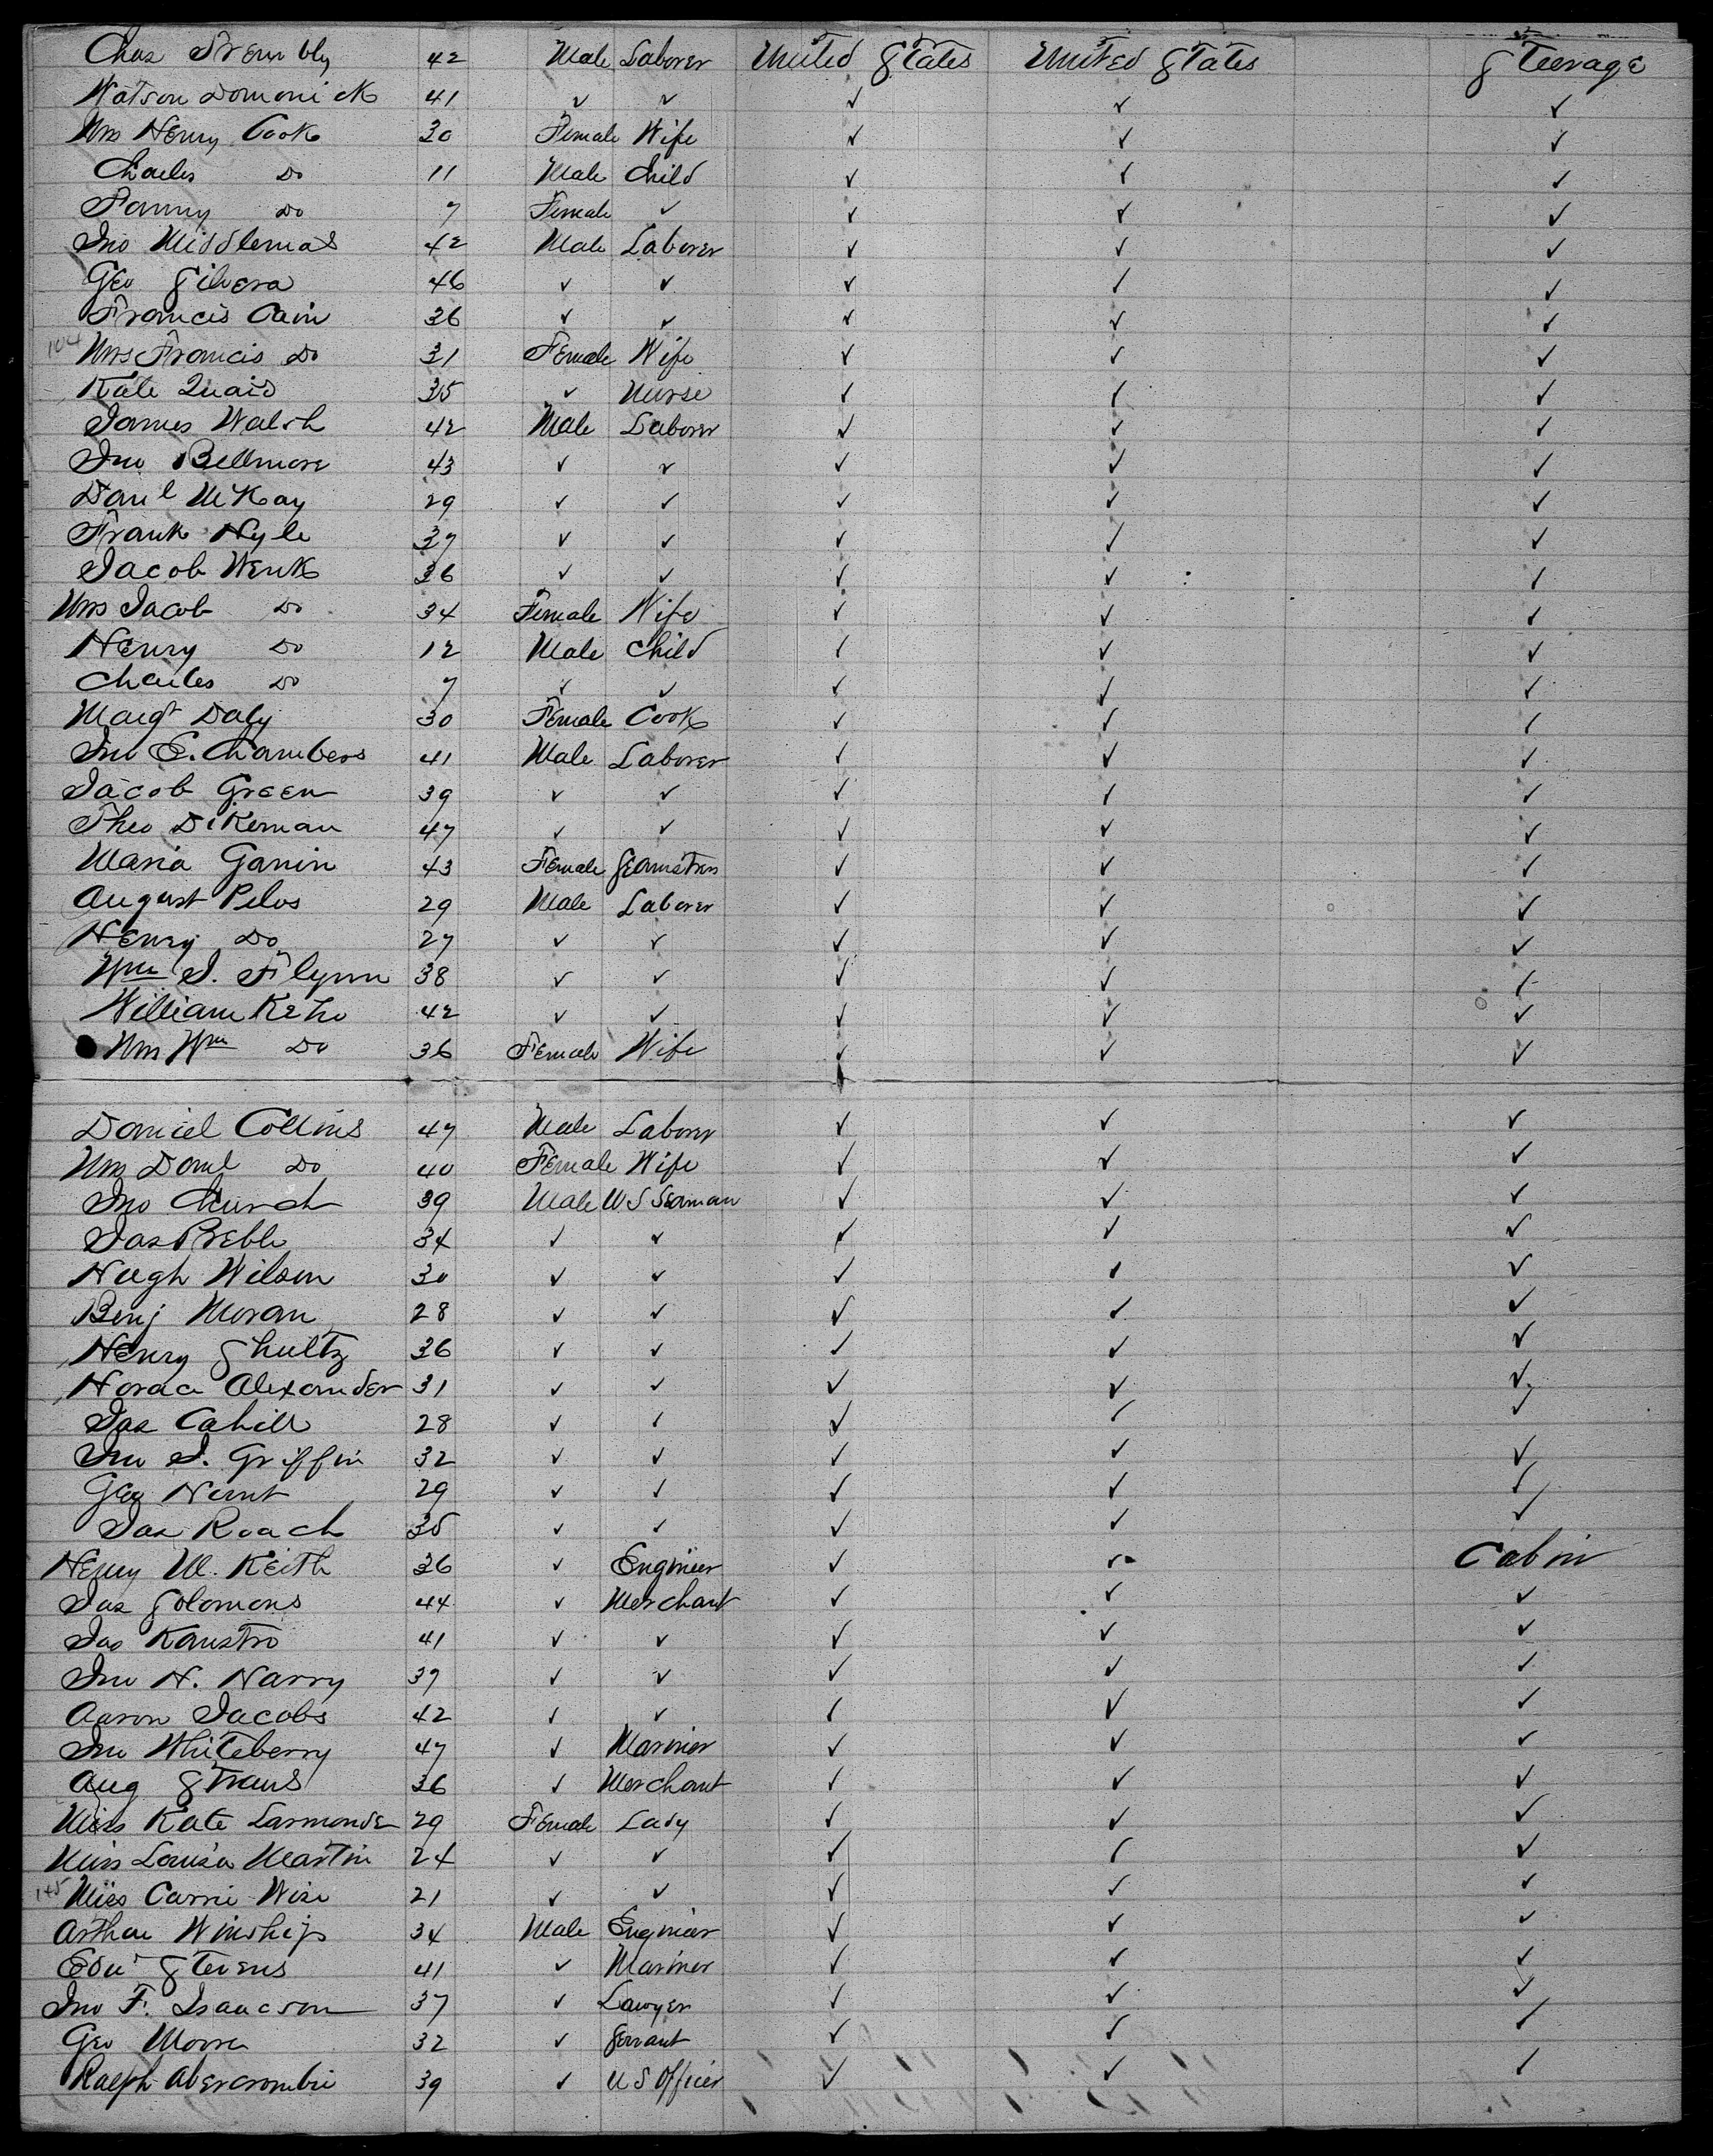 Chas Trembly 42 Male Laborer United States United States Steerage
Watson Domonick 41 ✓ ✓ ✓ ✓ ✓
Mrs Henry Cook 30 Female Wife ✓ ✓ ✓
Charles Do 11 Male Child ✓ ✓ ✓
Fanny Do 7 Female ✓ ✓ ✓ ✓
Jno Middlemas 42 Male Laborer ✓ ✓ ✓
Geo Silvera 46 ✓ ✓ ✓ ✓ ✓
Francis Cain 36 ✓ ✓ ✓ ✓ ✓
104 Mrs Francis Do 31 Female Wife ✓ ✓ ✓
Kate Quaid 35 ✓ Nurse ✓ ✓ ✓
James Walsh 42 Male Laborer ✓ ✓ ✓
Jno Bellmore 43 ✓ ✓ ✓ ✓ ✓
Danl McKay 29 ✓ ✓ ✓ ✓ ✓
Frank Hyle 37 ✓ ✓ ✓ ✓ ✓
Jacob Wenk 36 ✓ ✓ ✓ ✓ ✓
Mrs Jacob Do 34 Female Wife ✓ ✓ ✓
Henry Do 12 Male Child ✓ ✓ ✓
Charles Do 7 ✓ ✓ ✓ ✓ ✓
Margt Daly 30 Female Cook ✓ ✓ ✓
Jno E. Chambers 41 Male Laborer ✓ ✓ ✓
Jacob Green 39 ✓ ✓ ✓ ✓ ✓
Theo Dikeman 47 ✓ ✓ ✓ ✓ ✓
Maria Ganin 43 Female Seamstress ✓ ✓ ✓
August Pelos 29 Male Laborer ✓ ✓ ✓
Henry Do 27 ✓ ✓ ✓ ✓ ✓
Wm J. Flynn 38 ✓ ✓ ✓ ✓ ✓
William Keho 42 ✓ ✓ ✓ ✓ ✓
Mrs Wm Do 36 Female Wife ✓ ✓ ✓
Daniel Collins 47 Male Laborer ✓ ✓ ✓
Mrs Danl Do 40 Female Wife ✓ ✓ ✓
Jno Church 39 Male U S Seaman ✓ ✓ ✓
Jas Preble 34 ✓ ✓ ✓ ✓ ✓
Hugh Wilson 30 ✓ ✓ ✓ ✓ ✓
Benj Moran 28 ✓ ✓ ✓ ✓ ✓
Henry Shultz 36 ✓ ✓ ✓ ✓ ✓
Horace Alexander 31 ✓ ✓ ✓ ✓ ✓
Jas Cahill 28 ✓ ✓ ✓ ✓ ✓
Jno J. Griffin 32 ✓ ✓ ✓ ✓ ✓
Geo Hunt 29 ✓ ✓ ✓ ✓ ✓
Jas Roach 35 ✓ ✓ ✓ ✓ ✓
Henry M. Keith 36 ✓ Engineer ✓ ✓ Cabin
Jas Solomons 44 ✓ Merchant ✓ ✓ ✓
Jas Kanstro 41 ✓ ✓ ✓ ✓ ✓
Jno H. Harry 37 ✓ ✓ ✓ ✓ ✓
Aaron Jacobs 42 ✓ ✓ ✓ ✓ ✓
Jno Whiteberry 47 ✓ Mariner ✓ ✓ ✓
Aug Straus 36 ✓ Merchant ✓ ✓ ✓
Miss Kate Larmonde 29 Female Lady ✓ ✓ ✓
Miss Louisa Martin 24 ✓ ✓ ✓ ✓ ✓
145 Miss Carrie Wise 21 ✓ ✓ ✓ ✓ ✓
Arthur Winship 34 Male Engineer ✓ ✓ ✓
Edw Stevens 41 ✓ Mariner ✓ ✓ ✓
Jno F. Isaacson 37 ✓ Lawyer ✓ ✓ ✓
Geo Moore 32 ✓ Servant ✓ ✓ ✓
Ralph Abercrombie 39 ✓ U S Officer ✓ ✓ ✓